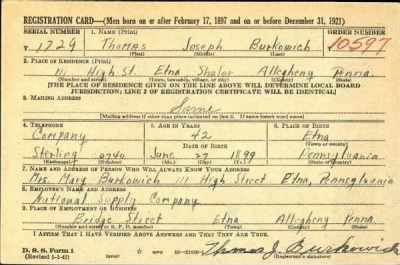 REGISTRATION CARD—(Men born on or after February 17, 1897 and on or before December 31, 1921)
SERIAL NUMBER 1. NAME (Print) ORDER NUMBER
T 1729 Thomas Joseph Burkowich 10597
(First) (Middle) (Last)
2. PLACE OF RESIDENCE (Print)
111 High St. Etna Shaler Allegheny Penna.
(Number and street) (Town, township, village, or city) (County) (State)
[THE PLACE OF RESIDENCE GIVEN ON THE LINE ABOVE WILL DETERMINE LOCAL BOARD
JURISDICTION; LINE 2 OF REGISTRATION CERTIFICATE WILL BE IDENTICAL]
3. MAILING ADDRESS
Same
[Mailing address if other than place indicated on line 2. If same insert word same]
4. TELEPHONE 5. AGE IN YEARS 6. PLACE OF BIRTH
Company 42 Etna
DATE OF BIRTH (Town or county)
Sterling 0740 June 27 1899 Pennsylvania
(Exchange) (Number) (Mo.) (Day) (Yr.) (State or country)
7. NAME AND ADDRESS OF PERSON WHO WILL ALWAYS KNOW YOUR ADDRESS
Mrs. Mary Burkowich 111 High Street Etna, Pennsylvania
8. EMPLOYER'S NAME AND ADDRESS
National Supply Company
9. PLACE OF EMPLOYMENT OR BUSINESS
Bridge Street Etna Allegheny Penna.
(Number and street or R. F. D. number) (Town) (County) (State)
I AFFIRM THAT I HAVE VERIFIED ABOVE ANSWERS AND THAT THEY ARE TRUE.
D. S. S. Form 1 Thomas J. Burkowich
(Revised 1-1-42) (over) (Registrant's signature)